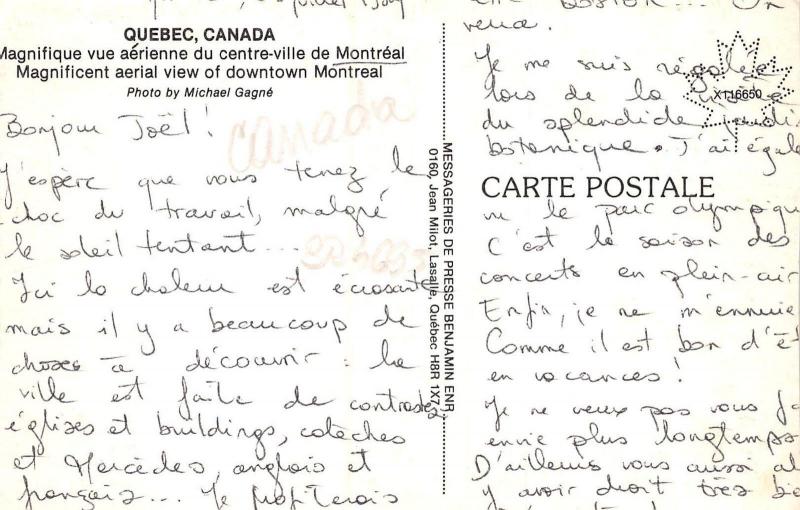 QUEBEC, CANADA
Magnifique vue aérienne du centre-ville de Montréal
Magnificent aerial view of downtown Montreal
Photo by Michael Gagné
Canada
Bonjour Joël !
J'espère que vous tenez le
choc du travail, malgré
le soleil tentant...
Ici la chaleur est écrasante
mais il y a beaucoup de
choses à découvrir : la
ville est faite de contrastes
églises et buildings, calèches
et Mercédès, anglais et
français... Je profiterais
MESSAGERIES DE PRESSE BENJAMIN ENR.
0160, Jean Milot, Lasalle, Québec H8R 1X7
venue.
Je me suis régalée
lors de la
du splendide
botanique. J'ai égale
X116650
CARTE POSTALE
vu le parc olympique
C'est la saison des
concerts en plein-air
Enfin, je ne m'ennuie
Comme il est bon d'êt
en vacances !
Je ne veux pas vous fa
envie plus longtemps
D'ailleurs vous aussi al
y avoir droit très bie